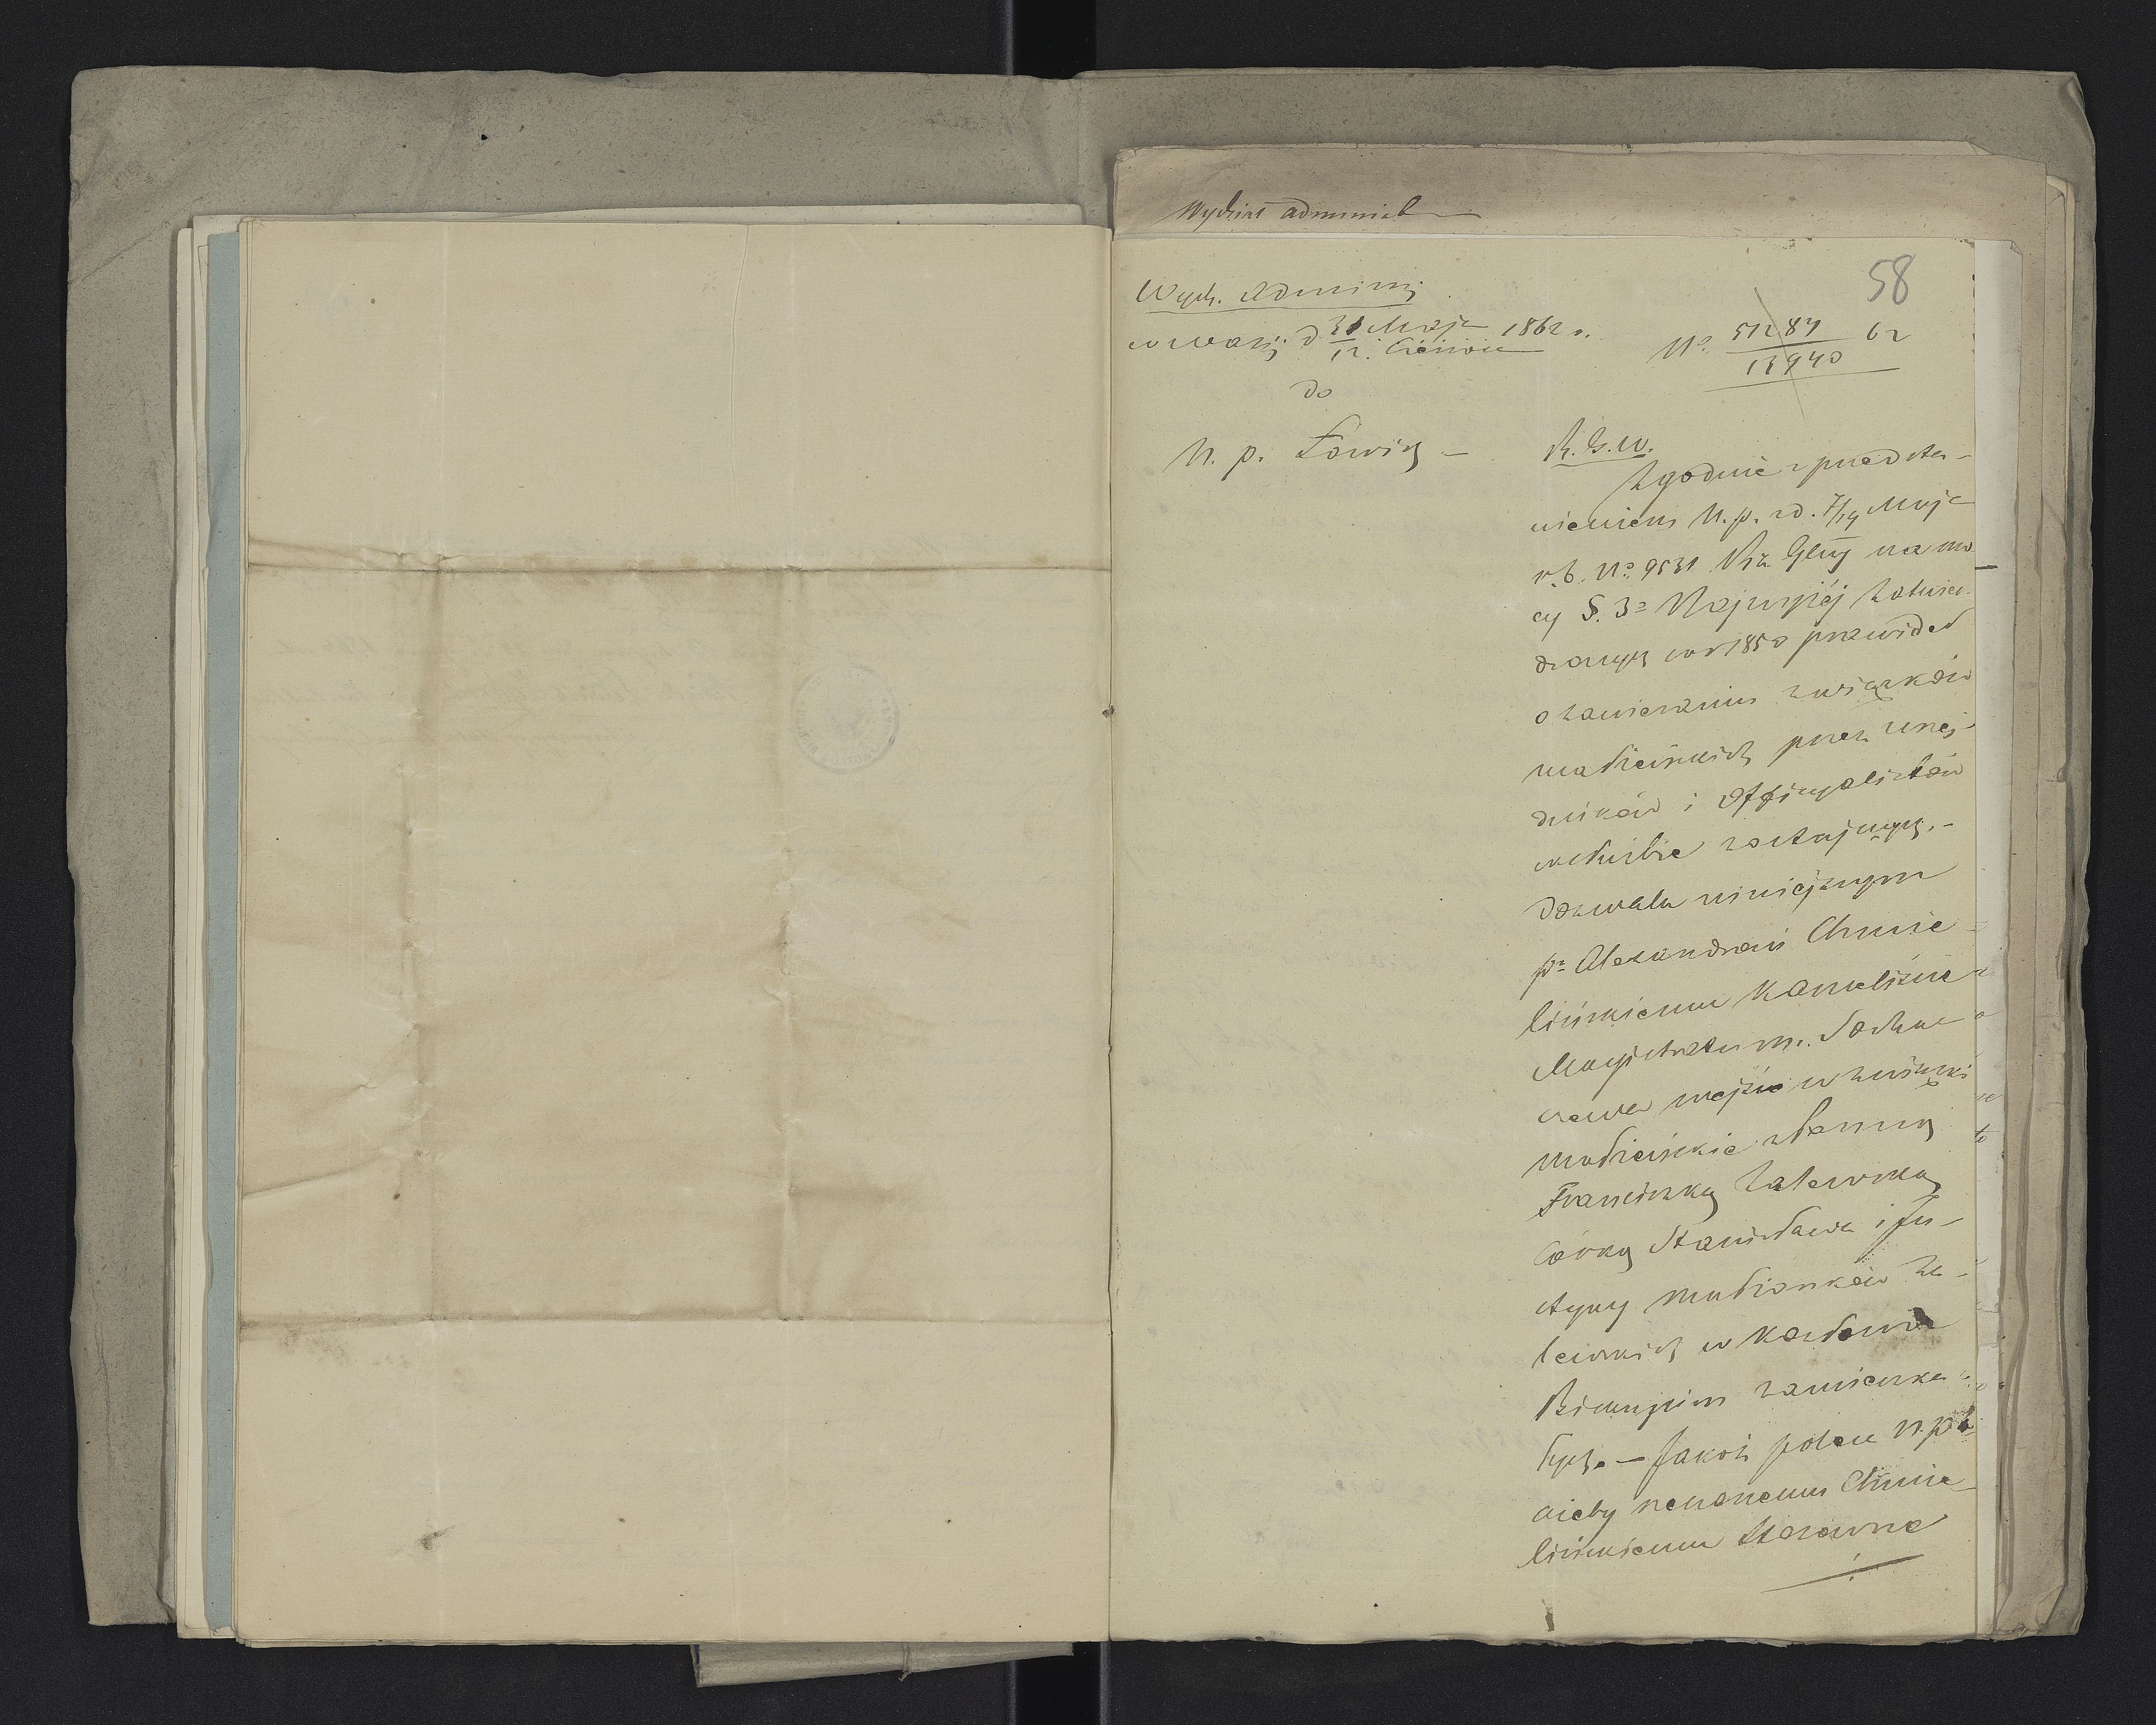 Wydział administ
58
Wydz. Admini
w Warsz. d 31 Maja 1862 r.
12. Czerwca
do
N. p. Łowicz –
Nº 51287 62
13940
R. G. W.
Zgodnie z przedsta-
wieniem N. p. z d. 7/19 Maja
r. b. Nº 9531 Rz. Gbny na mo
cy §. 3º Najwyżéj zatwier-
dzonych w r 1850 prawideł
o zawieraniu związków
małżeńskich przez urzę-
dników i Officyalistów
w służbie zostających. –
Dozwala niniejszym
pº Alexandrowi Chmie-
lińskiemu Kanceliście
Magistratu m. Socha-
czewa wejście w związki
małżeńskie z Panną
Franciszką Zalewską
Córką Stanisława i Ju-
styny Małżonków Za-
lewskich w
zamieszka-
łych. – Jakoż poleca N. p.
ażeby rzeczonemu Chmie-
lińskiemu stosowne